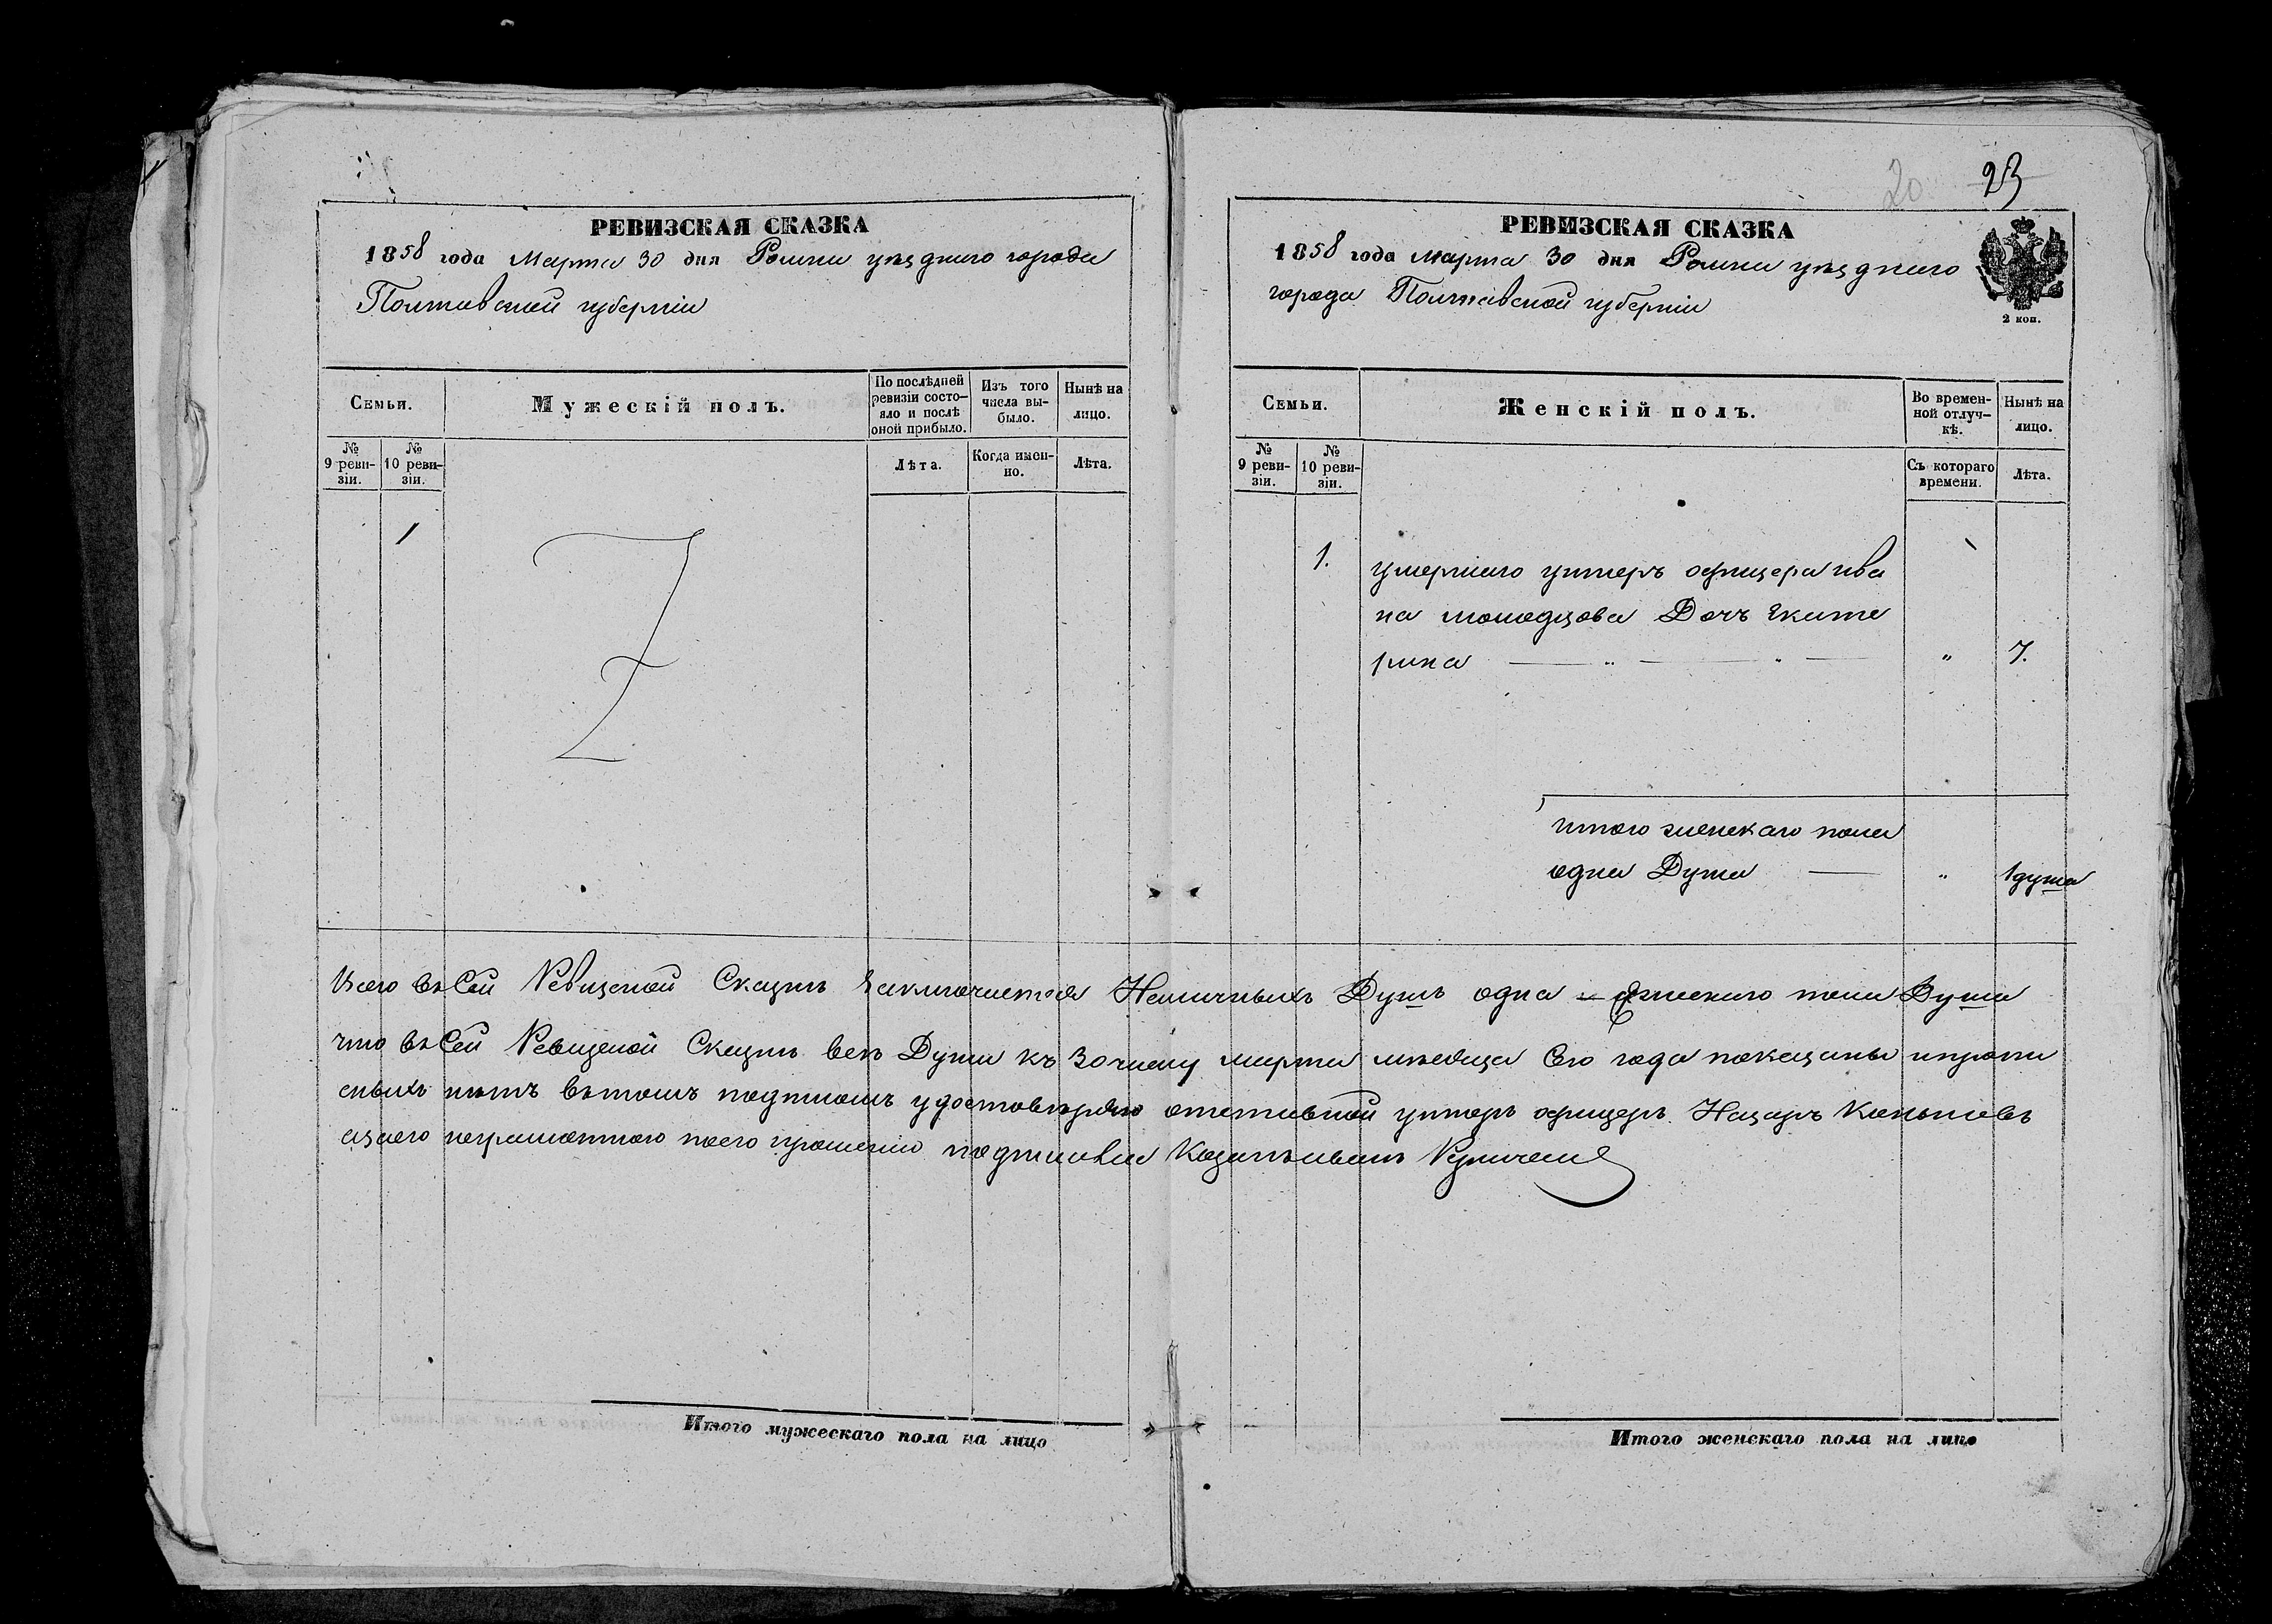 РЕВИЗСКАЯ СКАЗКА
1858 года Марта 30 дня Ромни уѣзднаго города
Полтавской губерніи
Семьи.
Мужескій полъ.
По послѣдней ревизіи состояло и послѣ оной прибыло.
Изъ того числа выбыло.
Нынѣ на лицо.
№ 9 ревизіи.
№ 10 ревизіи.
Лѣта.
Когда именно.
Лѣта.
1
Итого мужескаго пола на лицо
20
23
РЕВИЗСКАЯ СКАЗКА
1858 года марта 30 дня Ромни уѣзднаго
города Полтавской губерніи
2 коп.
Семьи.
Женскій полъ.
Во временной отлучкѣ.
Нынѣ на лицо.
№ 9 ревизіи.
№ 10 ревизіи.
Съ котораго времени.
Лѣта.
1.
умершаго унтеръ офицера ива
на молодцова Дочъ Екате
рина " 7.
итого женскаго пола
одна Душа " 1 душа
Всего въ Сей Ревизской Сказкѣ Заключается Наличныхъ Душъ одна женского пола Душа
что въ Сей Ревизской Сказкѣ всѣ Души къ 30 числу марта мѣсяца Сего года показаны ипропи
сныхъ нѣтъ вътомъ подписомъ удостовѣряю отставной унтеръ офицеръ Назаръ
азаего неграмотного поего прошенію подписался Козакъ иванъ
Итого женскаго пола на лицо